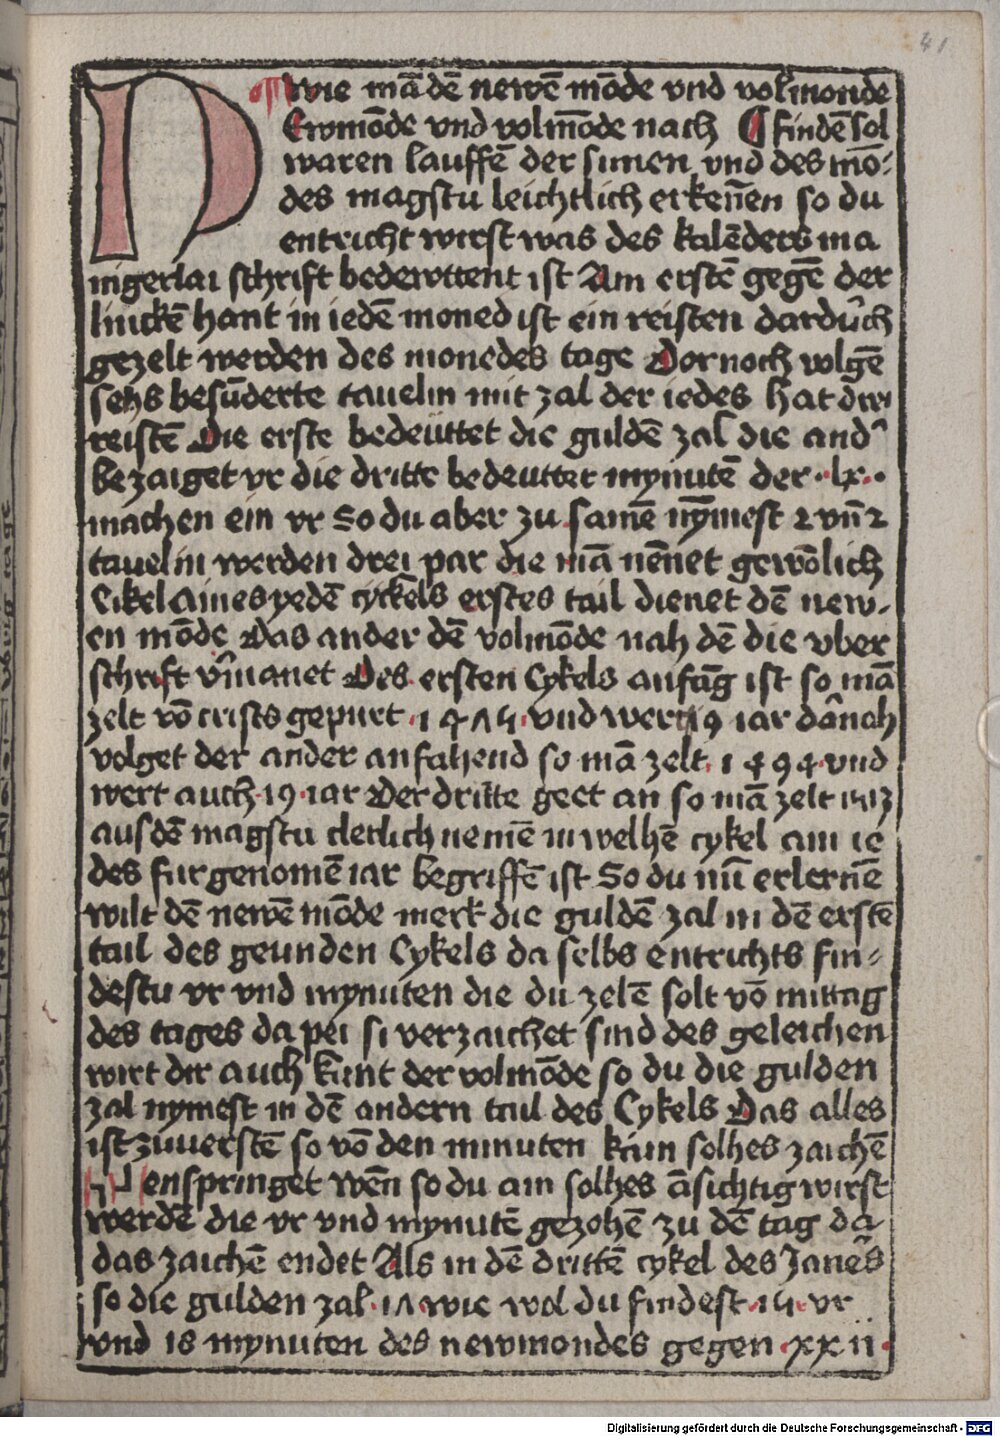 41
wie mā dē newē mōde vnd volmonde
N Ewmōde vnd volmōde nach ¶ findē sol
waren lauffē der sunen vnd des mō-
des magstu leichtlich erkeñen so du
entricht wirst was des kalēders ma
nigerlai schrift bedewttent ist Am erstē gegē der
linckē hant in iedē moned ist ein reisten dardůch
gezelt werden des monedes tage Dornoch volgē
sehs besūderte tauelin mit zal der iedes hat drei
reistē Die erste bedeüttet die guldē zal die and'
bezaiget vr die dritte bedeuttet mynutē der ·lx·
machen ein vr So du aber zu samē nymest 2 vñ 2
tauelin werden drei par die mā neñet gewōlich
Cikel Aines yedē cyckels erstes tail dienet dē new-
en mōde Das ander dē volmōde nah dē die vber
schrift v'manet Des ersten Cykels anfāg ist so mā
zelt vō crists gepurt ·1475· vnd wert 19 iar dānoch
volget der ander anfahend so mā zelt ·1494· vnd
wert auch ·19· iar Der dritte geet an so mā zelt 1513
aus dē magstu cletlich nemē in welhē cykel ain ie
des furgenomē iar begriffē ist So du nū erlernē
wilt dē newē mōde merk die guldē zal in dē erstē
tail des geunden Cykels da selbs entrichts fin-
destu vr vnd mynuten die du zelē solt vō mittag
des tages da pei si verzaichet sind des geleichen
wirt dir auch kunt der volmōde so du die gulden
zal nymest in dē andern tail des Cykels Das alles
ist zuuerstē so vō den minuten kain solhes zaichē
enspringet weñ so du ain solhes āsichtig wirst
werdē die vr vnd mynutē gezohē zu dē tag da
das zaichē endet Als in dē drittē cykel des Janēs
so die gulden zal ·17· wie wol du findest ·15· vr
vnd 18 mynuten des newmondes gegen ·xxii·
Digitalisierung gefördert durch die Deutsche Forschungsgemeinschaft - DFG